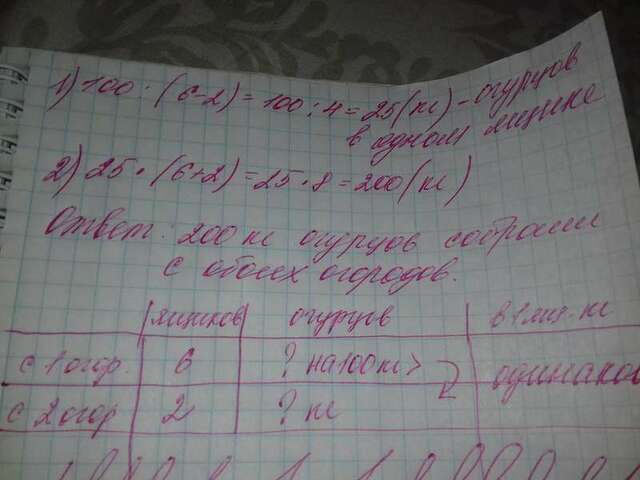 1) 100 : (6-2) = 100 : 4 = 25 (кг) - огурцов
в одном ящике
2) 25 • (6+2) = 25 • 8 = 200 (кг)
Ответ: 200 кг огурцов собрали
с обоих огородов.
ящиков огурцов в 1 ящ. кг
с 1 огор. 6 ? на 100 кг > одинаков
с 2 огор 2 ? кг